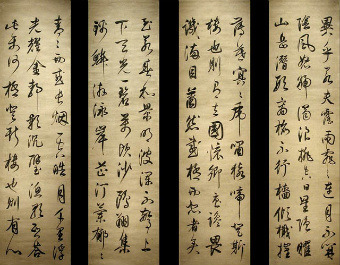 異乎若夫霪雨霏〻連月不開
陰風怒號濁浪排空日星隱曜
山岳潛形商旅不行檣傾楫摧
薄暮冥〻虎嘯猿啼登斯
樓也則有去國懷鄉憂讒畏
譏滿目蕭然感極而悲者矣
至若春和景明波瀾不驚上
下天光一碧萬頃沙鷗翔集
錦鱗游泳岸芷汀蘭郁〻
青〻而或長煙一空皓月千里浮
光耀金靜影沉璧漁歌互答
此樂何極登斯樓也則有心